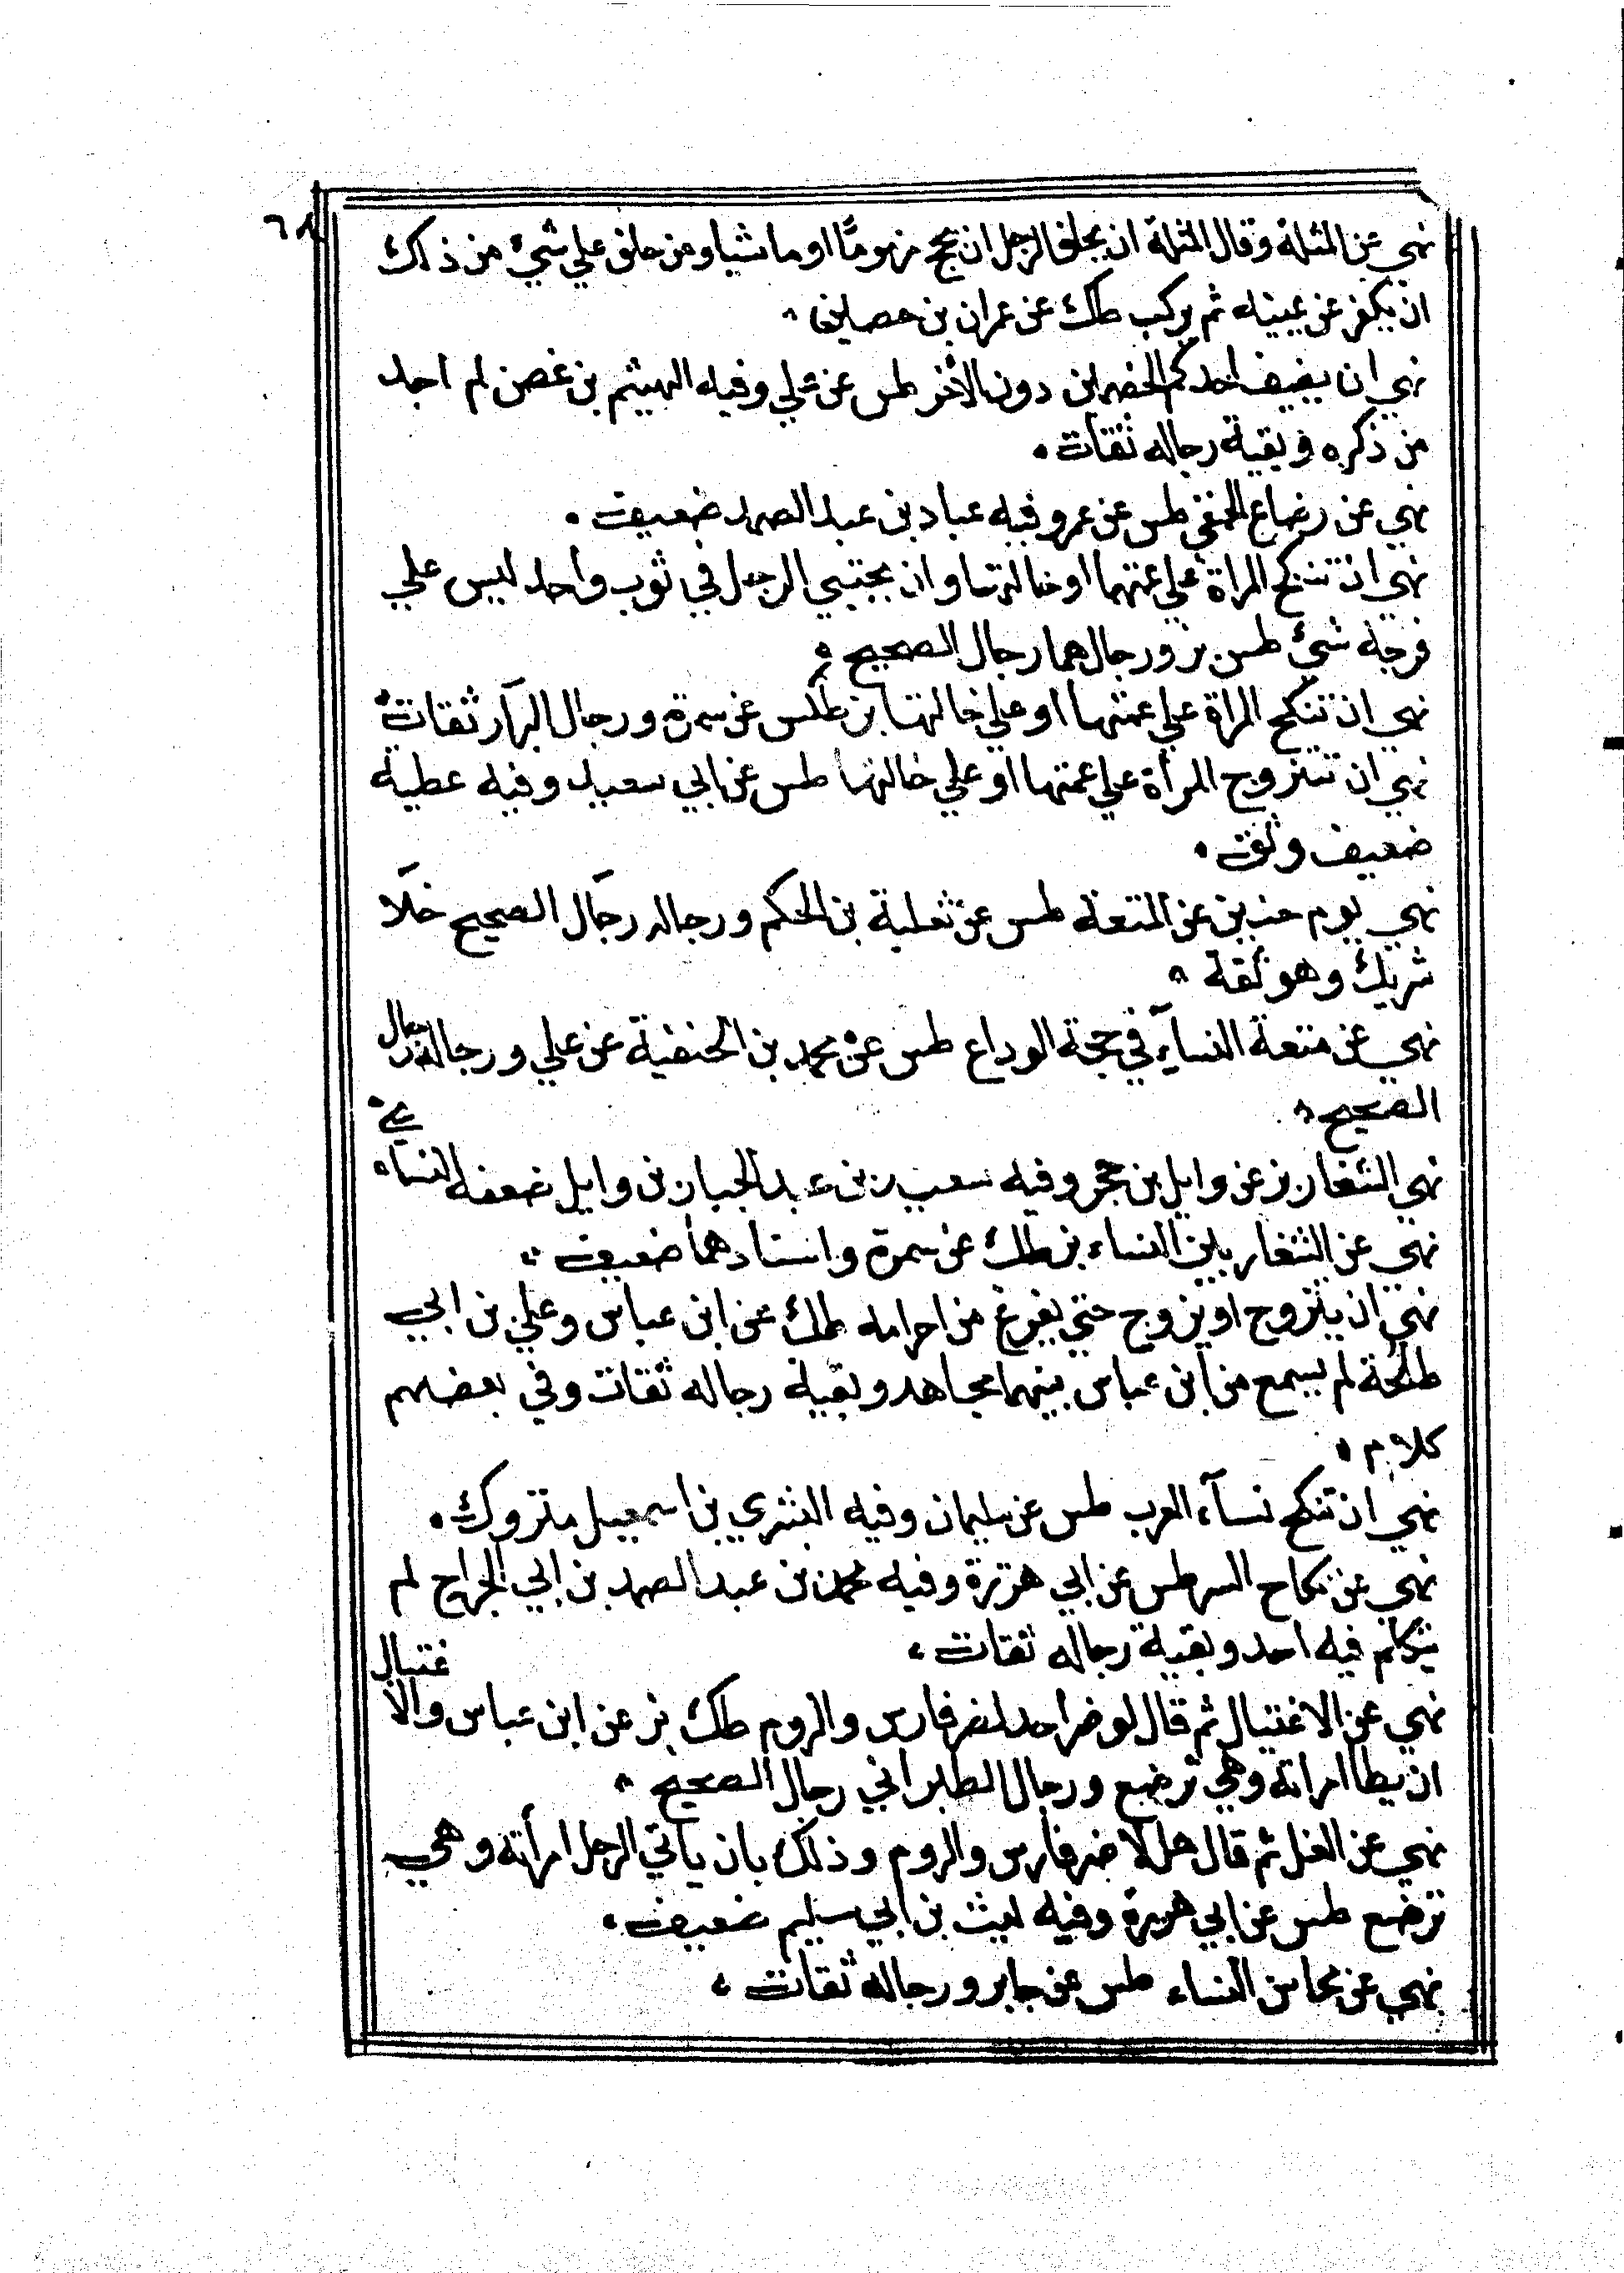 ٦٨
نهي عن المثلة وقال المثلة ان يحلف الرجل ان يحج مزموما او ماشيا ومن حلف علي شيء من ذلك
ان يكفر عن يمينه ثم يركب طك عن عمران بن حصين
نهي ان يضيف احدكم الخصمين دون الأخر طس عن علي وفيه الهيثم بن غصن لم اجد
من ذكره وبقية رجاله ثقات
نهي عن رضاع الحمقي طس عن عمرو فيه عباد بن عبد الصمد ضعيف
نهي ان تنكح المراة علي عمتها او خالتها وان يحتبي الرجل في ثوب واحد ليس علي
فرجه شيء طس بز ورجالهما رجال الصحيح
نهي ان تنكح المراة علي عمتها او علي خالتها بز طكس عن سمرة ورجال البزار ثقات
نهي ان تتزوج المرأة علي عمتها او علي خالتها طس عن ابي سعيد وفيه عطية
ضعيف وثق
نهي يوم حنين عن المتعة طس عن ثعلبة بن الحكم ورجاله رجال الصحيح خلا
شريك وهو ثقة
نهي عن متعة النساء في حجة الوداع طس عن محمد بن الحنفية عن علي ورجاله رجال
الصحيح
نهي الشغار بز عن وايل بن حجر وفيه سعيد بن عبد الجبار بن وايل ضعفه النساءي
نهي عن الشغار بين النساء بز طك عن سمرة واسنادهما ضعيف
نهي ان يتزوج او يزوج حتي يفرغ من احرامه طك عن ابن عباس وعلي بن ابي
طلحة لم يسمع من ابن عباس بينهما مجاهد وبقية رجاله ثقات وفي بعضهم
كلام
نهي ان تنكح نساء العرب طس عن سليمان وفيه السري بن اسمعيل متروك
نهي عن نكاح السر طس عن ابي هريرة وفيه محمد بن عبد الصمد بن ابي الجراح لم
يتكلم فيه احد وبقية رجاله ثقات
نهي عن الاغتيال ثم قال لو ضر احد لضر فارس والروم طك بز عن ابن عباس والاغتيال
ان يطا امراته وهي ترضع ورجال الطبراني رجال الصحيح
نهي عن الغيل ثم قال هل لا ضر فارس والروم وذلك بان ياتي الرجل امرأته وهي
ترضع طس عن ابي هريرة وفيه ليث بن ابي سليم ضعيف
نهي عن محاسن النساء طس عن جابر ورجاله ثقات